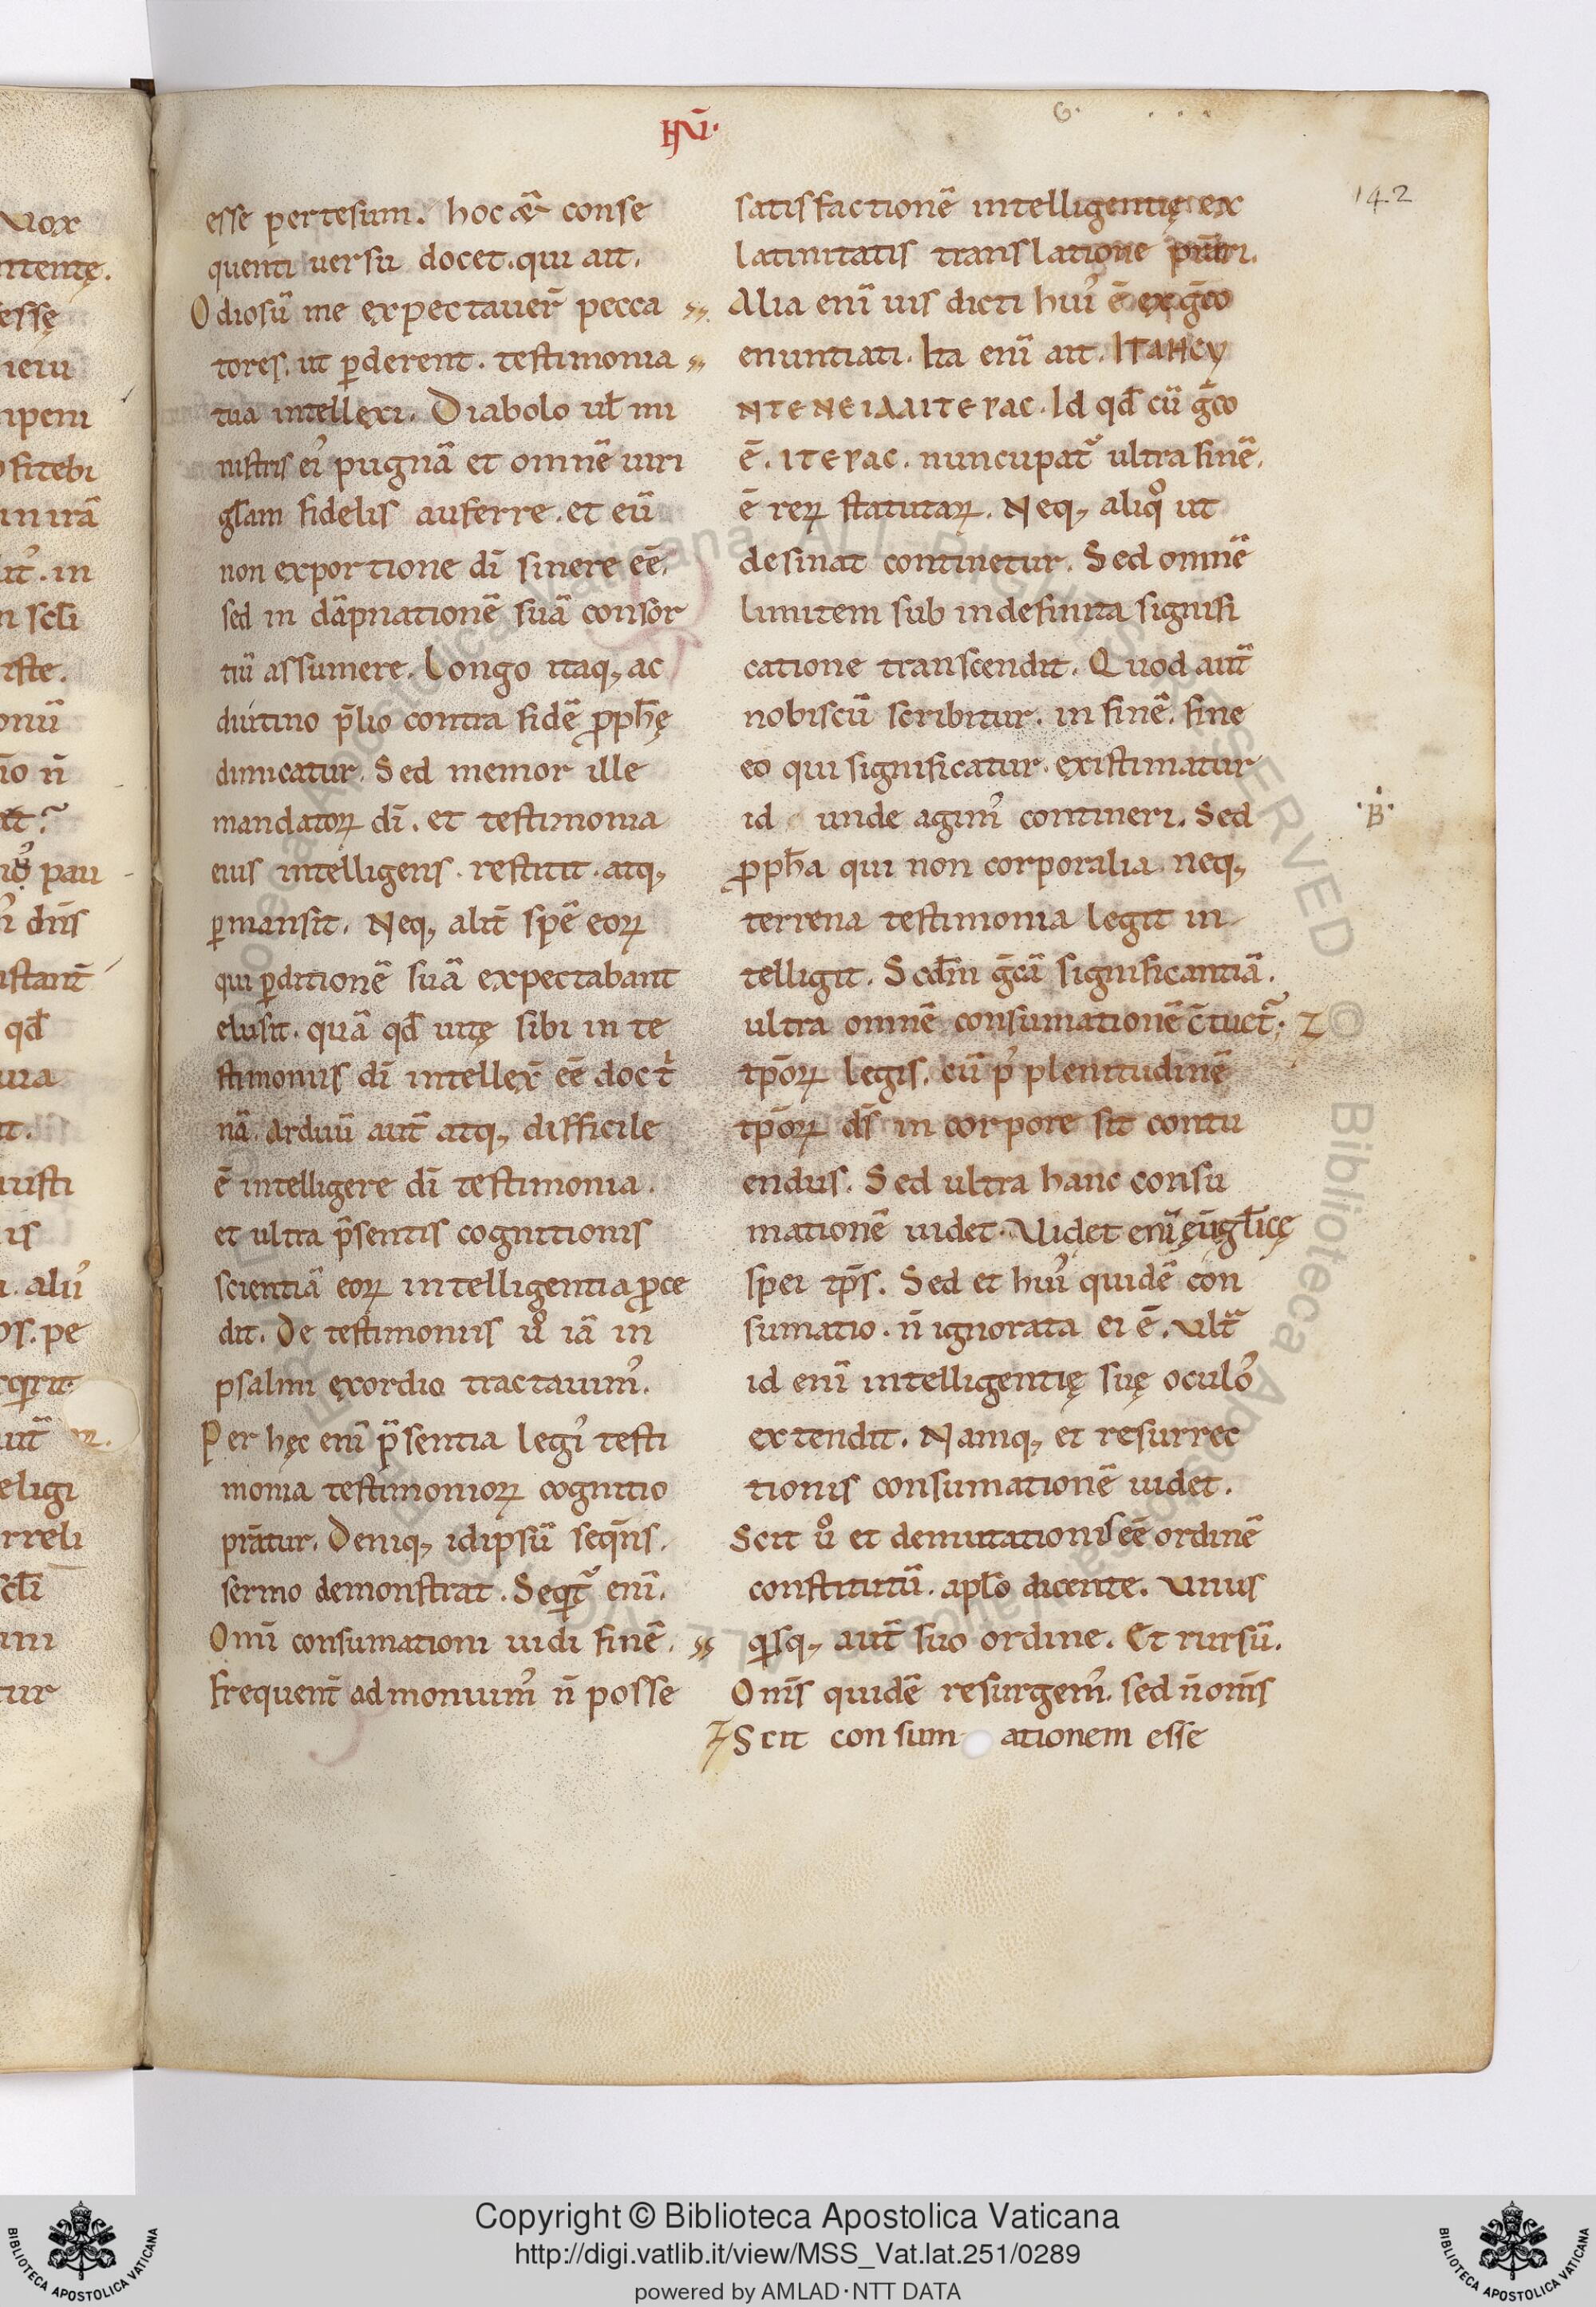 G.
142
esse pertesum. hoc & conse
quenti uersu docet. qui ait.
Odiosũ me expectauer̄ pecca
tores. ut ꝑderent. testimonia
tua intellexi. Diabolo ul̄ mi
nistris ei' pugnã et omnẽ uiri
gl̄am fidelis auferre. et eũ
non exportione dī sinere eē.
sed in dãpnationẽ suã consor
tiũ assumere. Longo itaq; ac
diutino p̄lio contra fidẽ ꝓph̄ę
dimicatur. Sed memor ille
mandatoꝝ dī. et testimonia
eius intelligens. restitit. atq;
ꝑmansit. Neq; alit̄ spẽ eoꝝ
qui ꝑditionẽ suã expectabant
elusit. quã qđ uitę sibi in te
stimoniis dī intellex̄ eē doct
nã. arduũ aut̃ atq; difficile
ē intelligere dī testimonia.
et ultra p̄sentis cognitionis
scientiã eoꝝ intelligentia ꝓce
dit. De testimoniis uº iã in
psalmi exordio tractauim'.
Per hęc enĩ p̃sentia legi' testi
monia testimonioꝝ cognitio
prãtur. Deniq; idipsũ seqn̄s.
sermo demonstrat. Seqt̃ enĩ.
Omī consumationi uidi finẽ.
Frequent̄ admonuim' n̄ posse
satisfactionẽ intelligentię ex
latinitatis translatione prãri.
Alia enĩ uis dicti hui' ē ex gc̄o
enuntiati. Ita enĩ ait. ITAHCY
NTENEIAAITEPAC. Id qđ cũ gc̄o
ē. ITEPAC. nuncupat᷑ ultra finẽ.
ē reꝝ statutaꝝ. Neq; aliqº ut
desinat continetur. Sed omnẽ
limitem sub indefinita signifi
catione transcendit. Quod aut̃
nobiscũ scribitur. in finẽ. fine
eo qui significatur. existimatur
id unde agim' contineri. Sed
ꝓph̄a qui non corporalia neq;
terrena testimonia legit in
telligit. Scđm gc̄ã significantiã.
ultra omnẽ consumationẽ c̄tuet᷑;
tp̄oꝝ legis. cũ p' plenitudinẽ
tp̄oꝝ ds̄ in corpore sit contu
endus. Sed ultra hanc consu
mationẽ uidet. Videt enĩ eũgl̄icę
spei tp̄s. Sed et hui' quidẽ con
sumatio. n̄ ignorata ei ē. Vlt̃
id enĩ intelligentię suę oculo'
extendit. Namq; et resurrec
tionis consumationẽ uidet.
Scit uº et demutationis eē ordinẽ
constitutũ. apl̄o dicente. Vnus
qsq; aut̃ suo ordine. Et rursũ.
Om̄s quidẽ resurgem'. sed n̄ om̄s
Scit consum ationem esse
B
Copyright © Biblioteca Apostolica Vaticana
http://digi.vatlib.it/view/MSS_Vat.lat.251/0289
powered by AMLAD·NTT DATA
BIBLIOTECA APOSTOLICA VATICANA
BIBLIOTECA APOSTOLICA VATICANA